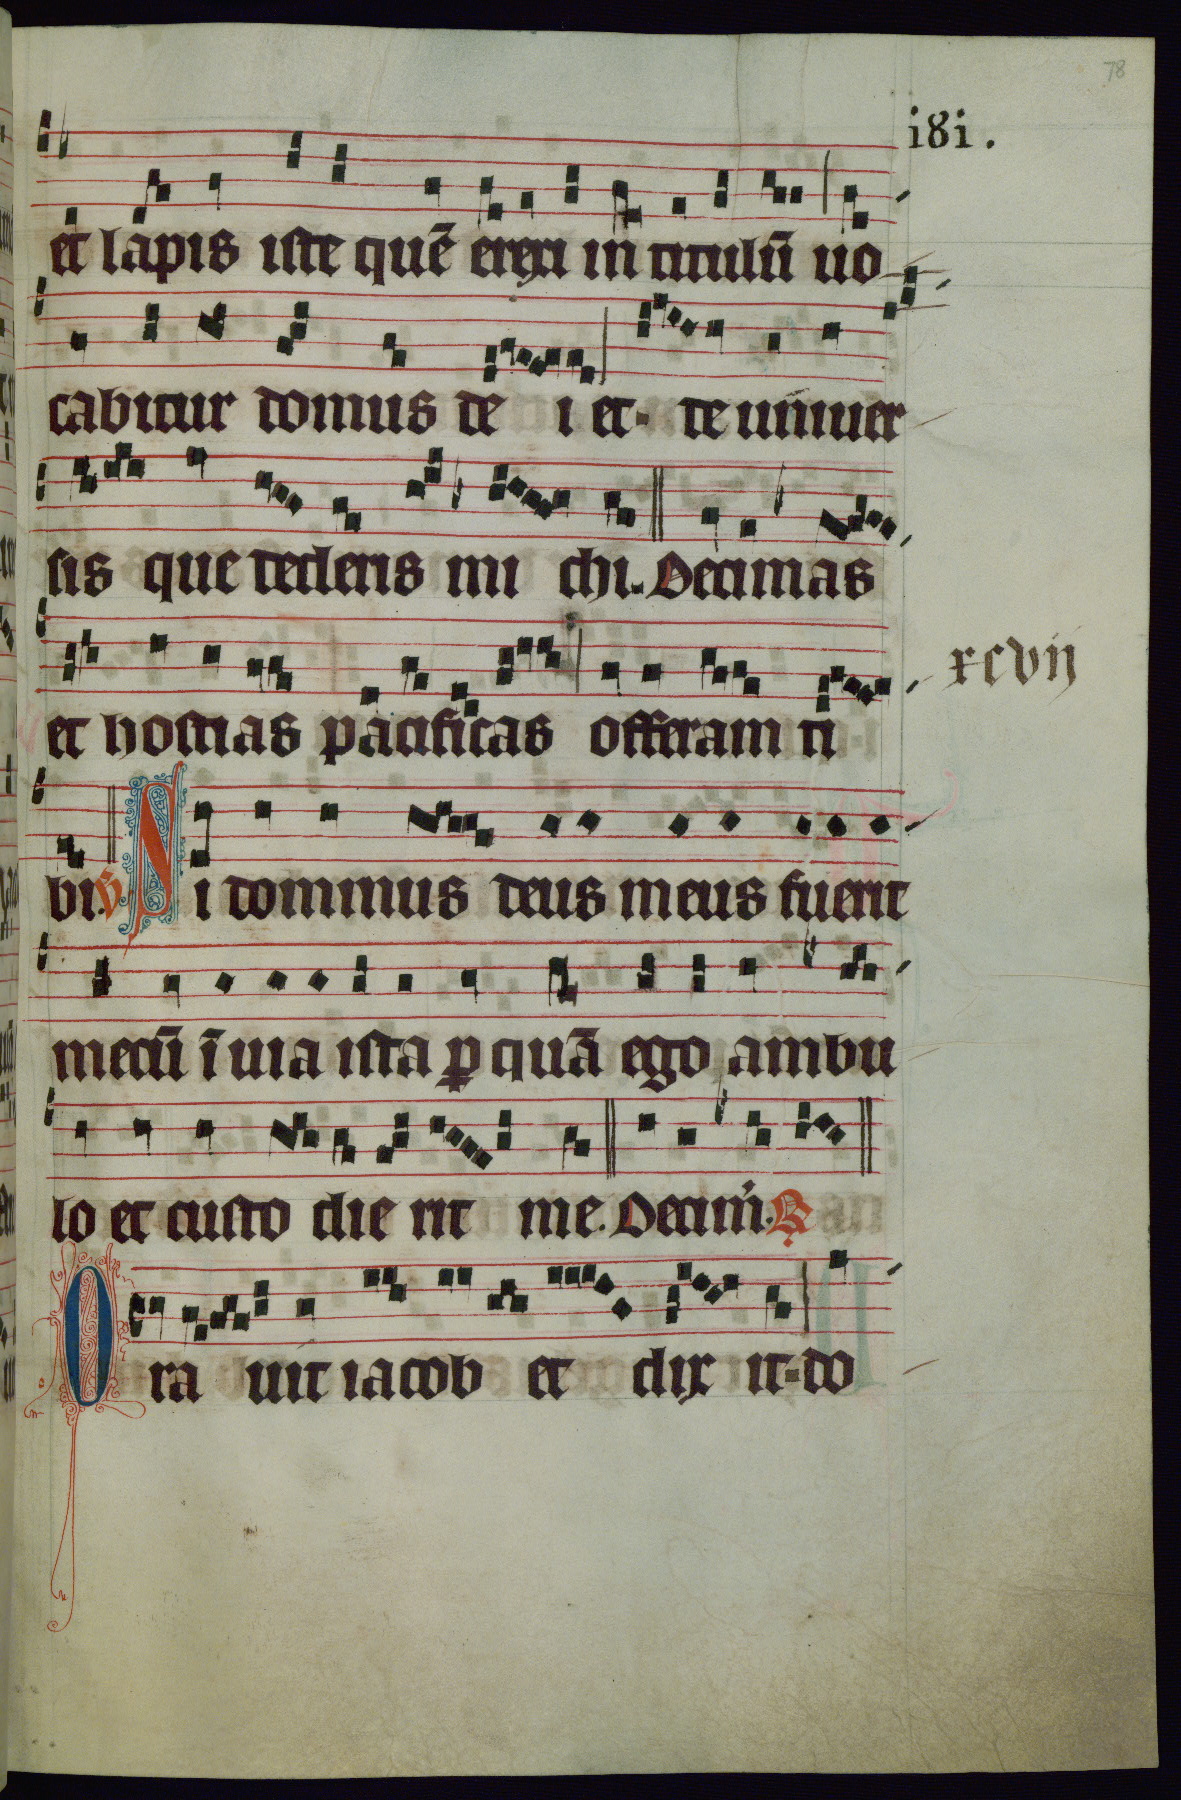 78
i8i.
et lapis iste quē erexi in titulū uo
cabitur domus de i et de uniuer
sis que dederis mi chi. Decimas
et hostias pacificas offeram ti
xcvij
bi. V Si dominus deus meus fuerit
mecū ī uia ista p quā ego ambu
lo et custo die rit me. Decim. R
Ora uit iacob et dix it do